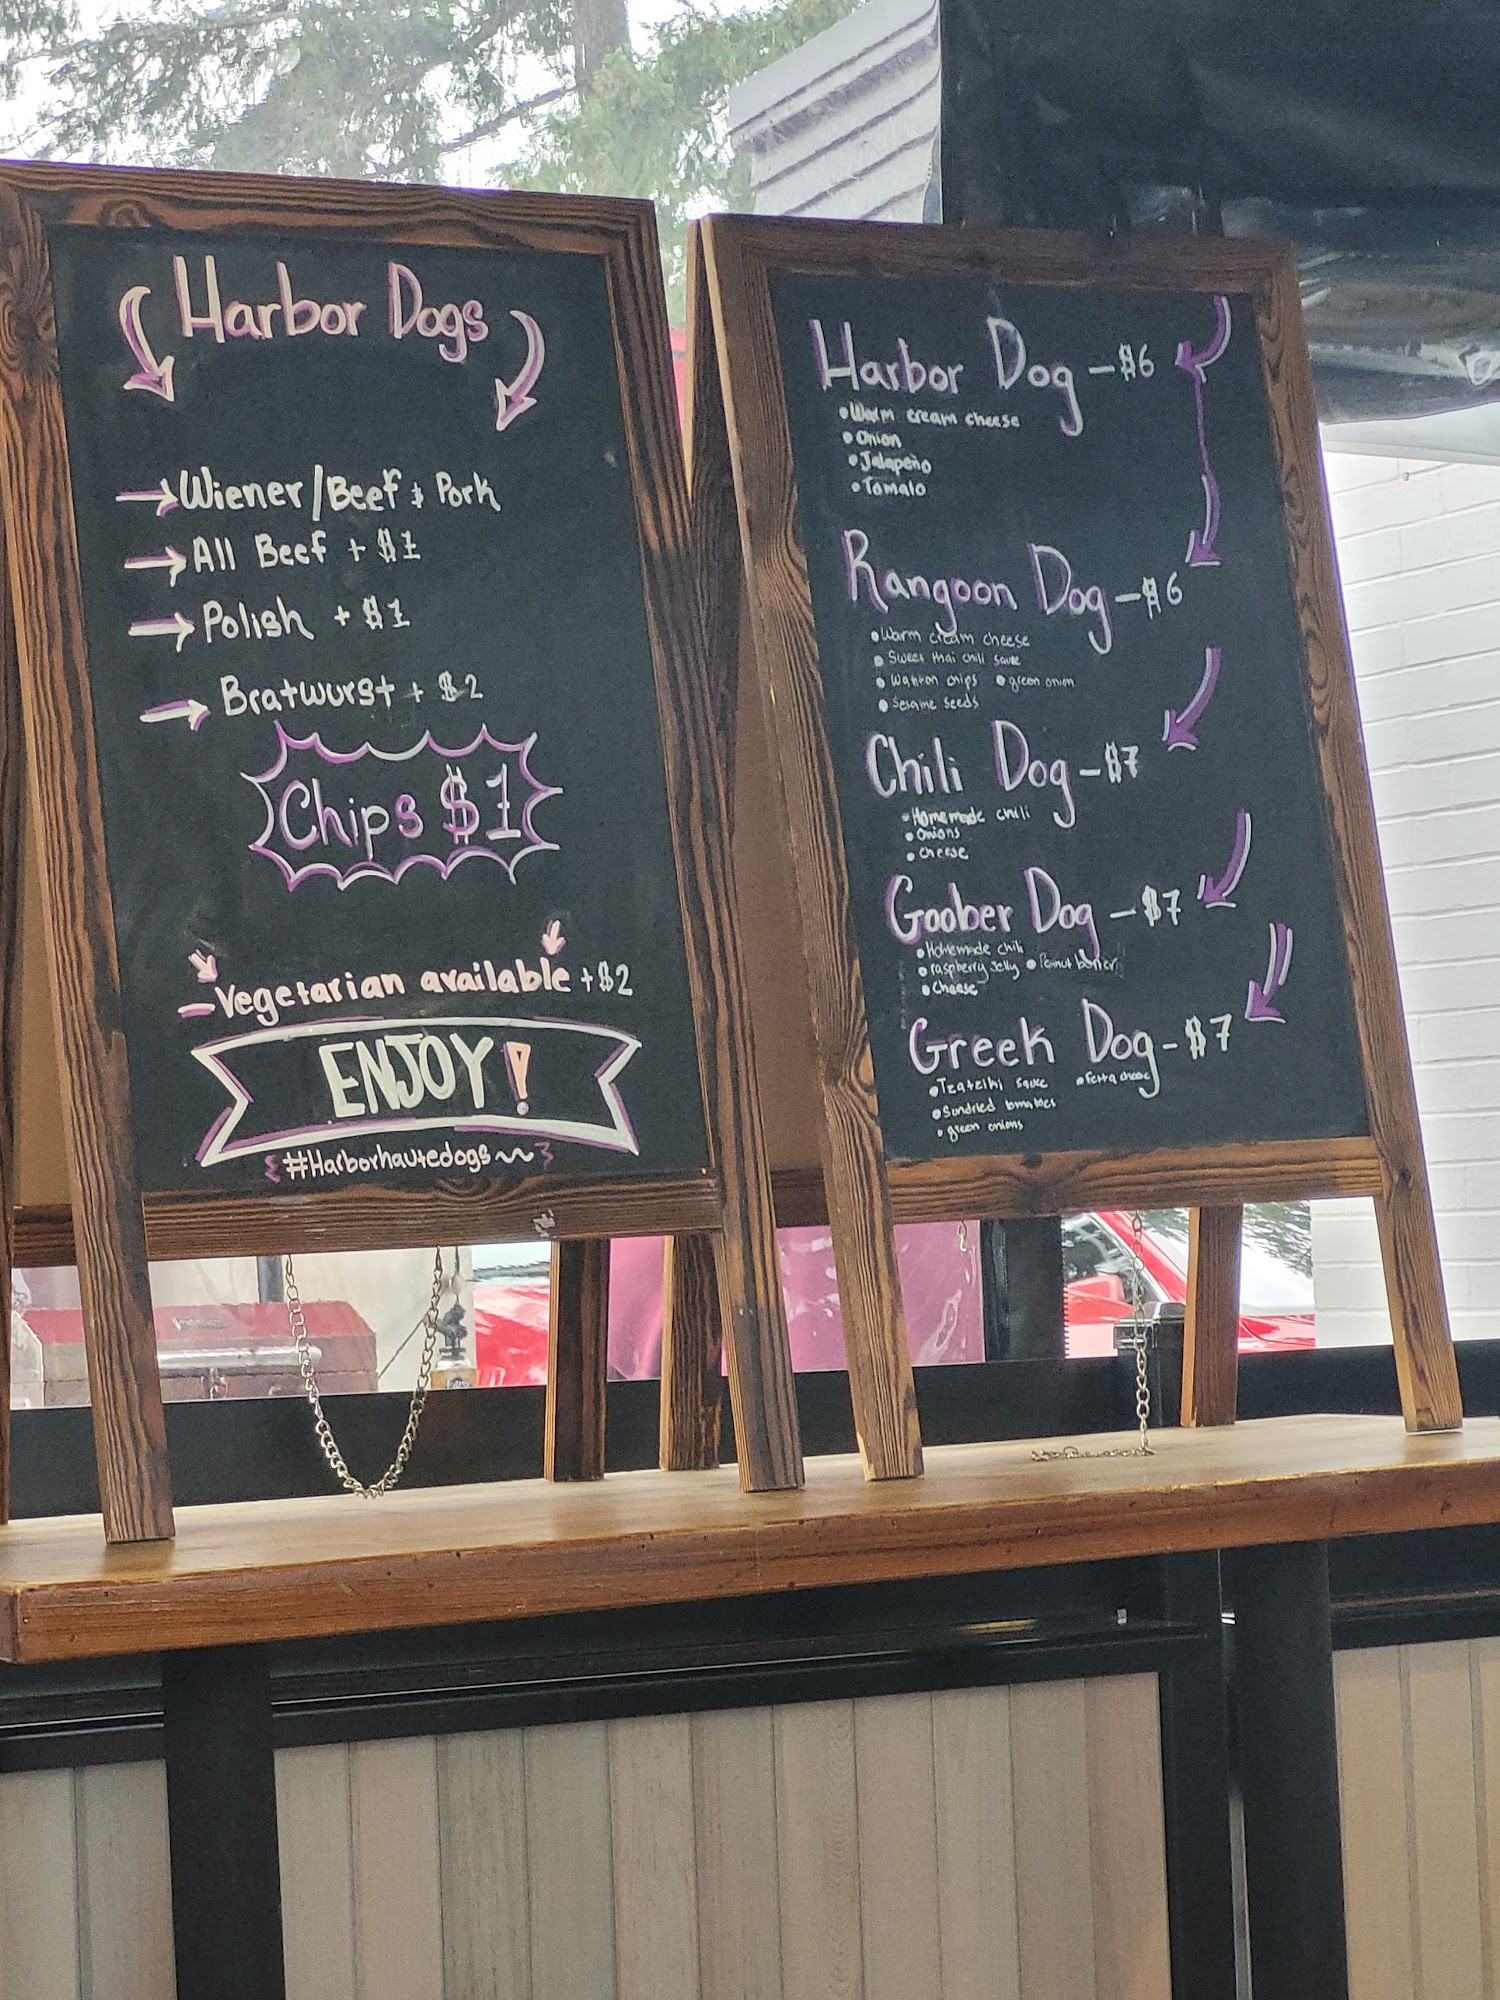 Harbor Dogs
Wiener/Beef & Pork
All Beef + $1
Polish + $1
Bratwurst + $2
Chips $1
Vegetarian available + $2
ENJOY!
{#Harborhautedogs~~}
Harbor Dog - $6
• Warm cream cheese
• Onion
• Jalapeño
• Tomato
Rangoon Dog - $6
• Warm cream cheese
• Sweet thai chili sauce
• Wonton chips • green onion
• Sesame seeds
Chili Dog - $7
• Homemade chili
• Onions
• cheese
Goober Dog - $7
• Homemade chili
• raspberry Jelly • Peanut butter
• Cheese
Greek Dog - $7
• Tzatziki sauce • fetta cheese
• Sundried tomatoes
• green onions